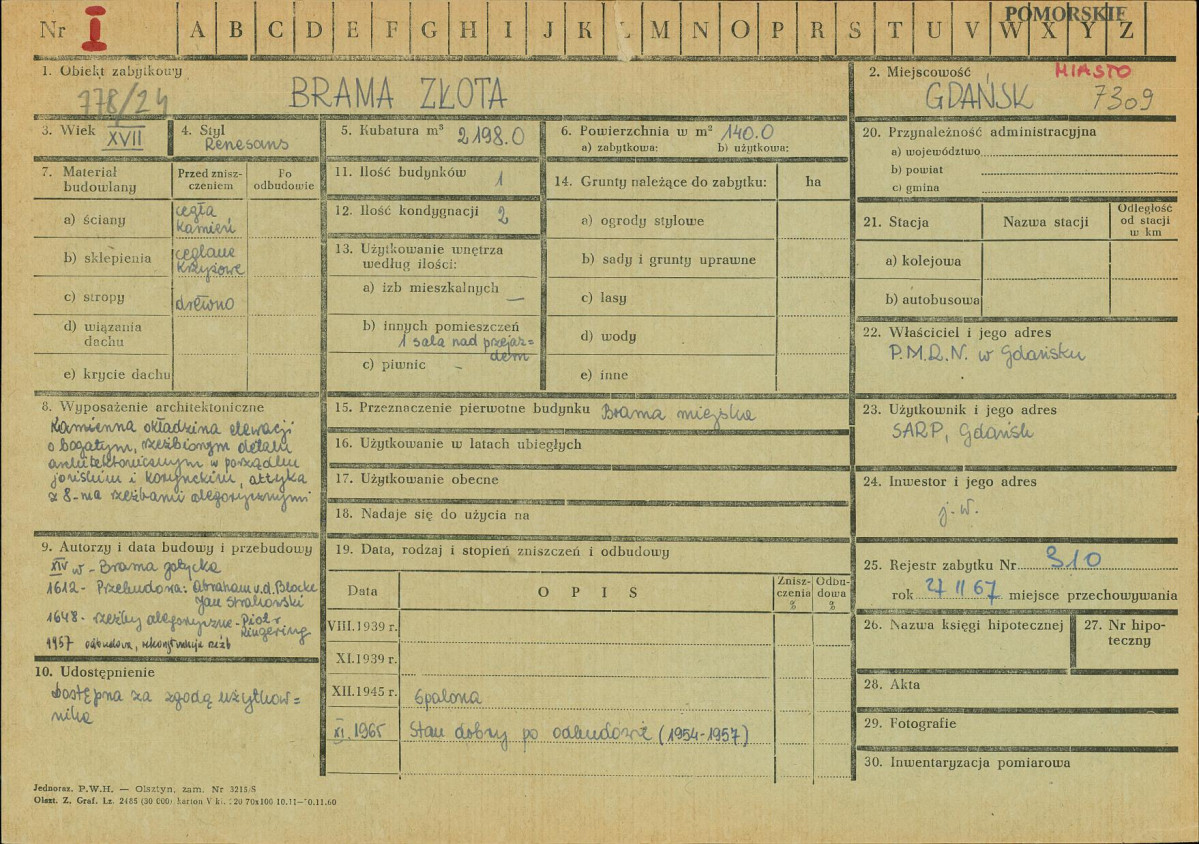 Nr I A B C D E F G H I J K L M N O P R S T U V W X Y Z
POMORSKIE
1. Obiekt zabytkowy
778/24
BRAMA ZŁOTA
2. Miejscowość MIASTO
GDAŃSK 7309
3. Wiek XVII
4. Styl
Renesans
5. Kubatura m³ 2198.0
6. Powierzchnia w m² 140.0
a) zabytkowa: b) użytkowa:
7. Materiał budowlany
Przed zniszczeniem
Po odbudowie
a) ściany
cegła
kamień
b) sklepienia
ceglane
krzyżowe
c) stropy drewno
d) wiązania dachu
e) krycie dachu
8. Wyposażenie architektoniczne
Kamienna okładzina elewacji
o bogatym, rzeźbionym detalu
architektonicznym w porządku
jońskim i korynckim, attyka
z 8-ma rzeźbami alegorycznymi
9. Autorzy i data budowy i przebudowy
XIV w - Brama gotycka
1612 - Przebudowa: Abraham v.d. Blocke
Jan Strakowski
1648 - rzeźby alegoryczne - Piotr
Ringering
1957 odbudowa, rekonstrukcja rzeźb
10. Udostępnienie
Dostępna za zgodą użytkow=
nika
11. Ilość budynków 1
12. Ilość kondygnacji 2
13. Użytkowanie wnętrza
według ilości:
a) izb mieszkalnych —
b) innych pomieszczeń
1 sala nad przejaz=
dem
c) piwnic -
14. Grunty należące do zabytku: ha
a) ogrody stylowe
b) sady i grunty uprawne
c) lasy
d) wody
e) inne
15. Przeznaczenie pierwotne budynku Brama miejska
16. Użytkowanie w latach ubiegłych
17. Użytkowanie obecne
18. Nadaje się do użycia na
19. Data, rodzaj i stopień zniszczeń i odbudowy
Data OPIS Zniszczenia % Odbudowa %
VIII.1939 r.
XI.1939 r.
XII.1945 r. Spalona
XI.1965 Stan dobry po odbudowie (1954-1957)
20. Przynależność administracyjna
a) województwo
b) powiat
c) gmina
21. Stacja Nazwa stacji Odległość od stacji w km
a) kolejowa
b) autobusowa
22. Właściciel i jego adres
P.M.R.N. w Gdańsku
23. Użytkownik i jego adres
SARP, Gdańsk
24. Inwestor i jego adres
j.w.
25. Rejestr zabytku Nr 310
rok 27 II 67 miejsce przechowywania
26. Nazwa księgi hipotecznej
27. Nr hipoteczny
28. Akta
29. Fotografie
30. Inwentaryzacja pomiarowa
Jednoraz. P.W.H. — Olsztyn, zam. Nr 3215/S
Olszt. Z. Graf. Lz. 2485 (30 000) karton V kl.